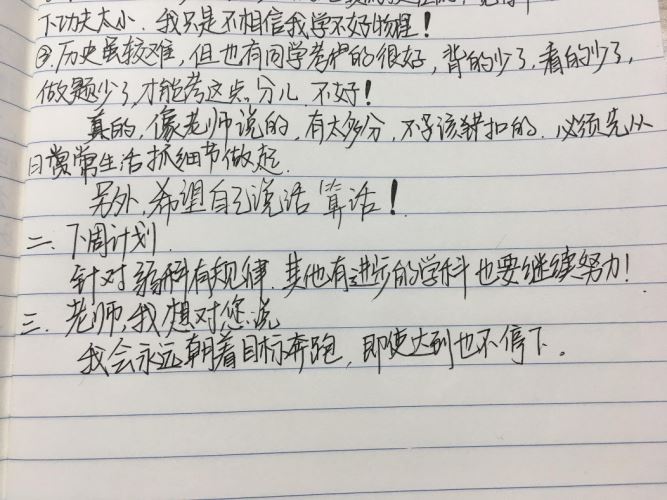 下功夫太小，我只是不相信我学不好物理！
③历史虽较难，但也有同学考的很好，背的少了，看的少了，
做题少了，才能考这点分儿，不好！
真的，像老师说的，有太多分，不应该错扣的，必须先从
日常生活抓细节做起。
另外，希望自己说话算话！
二、下周计划
针对弱科有规律，其他有进步的学科也要继续努力！
三、老师，我想对您说
我会永远朝着目标奔跑，即使达到也不停下。